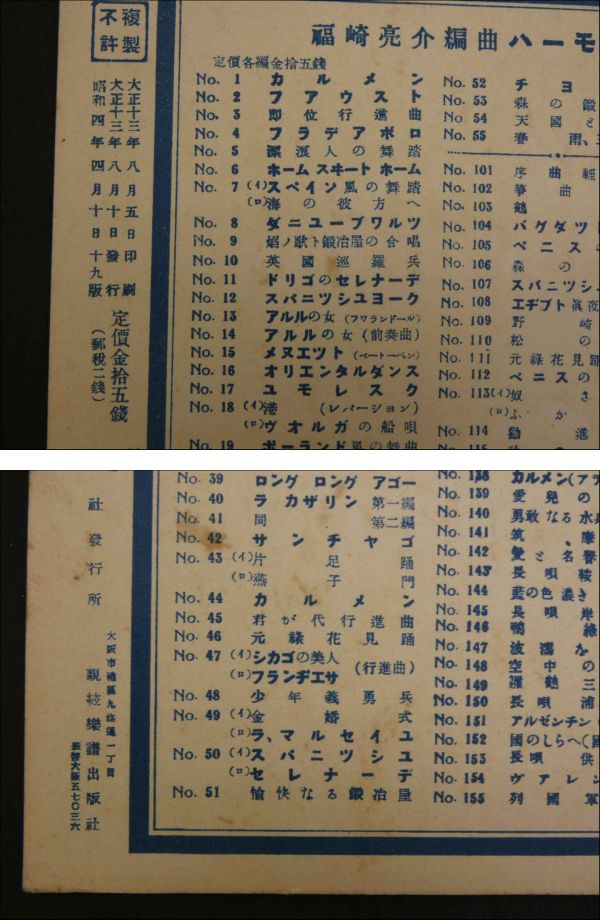 複製
不許
大正十三年八月五日印刷
大正十三年八月十日發行
昭和四年四月十日十九版
定價金拾五錢
(郵税二錢)
福崎亮介編曲ハーモ
定價各編金拾五錢
No. 1 カルメン
No. 2 フアウスト
No. 3 即位行進曲
No. 4 フラデアボロ
No. 5 深浪人の舞踏
No. 6 ホームスヰートホーム
No. 7 (イ)スペイン風の舞踏
(ロ)海の彼方へ
No. 8 ダニユーブワルツ
No. 9 焰ノ歌ト鍛冶屋の合唱
No. 10 英國巡羅兵
No. 11 ドリゴのセレナーデ
No. 12 スパニツシユヨーク
No. 13 アルルの女(フワランドール)
No. 14 アルルの女(前奏曲)
No. 15 メヌエツト(ベートーベン)
No. 16 オリエンタルダンス
No. 17 ユモレスク
No. 18 (イ)港(レバーション)
(ロ)ヴオルガの船唄
No. 19 ポーランド風の舞曲
No. 52 チヨ
No. 53 森の鍛
No. 54 天國と
No. 55 春雨、
No. 101 序曲輕
No. 102 箏曲
No. 103 鶴
No. 104 バグダツ
No. 105 ベニスの
No. 106 森の
No. 107 スパニツシ
No. 108 エヂプト眞夜
No. 109 野崎
No. 110 松の
No. 111 元祿花見踊
No. 112 ベニスの
No. 113(イ)奴さ
(ロ)ふか
No. 114 勸進
No. 39 ロングロングアゴー
No. 40 ラカザリン 第一編
No. 41 同 第二編
No. 42 サンチヤゴ
No. 43 (イ)片足踊
(ロ)燕子門
No. 44 カルメン
No. 45 君が代行進曲
No. 46 元祿花見踊
No. 47 (イ)シカゴの美人
(行進曲)
(ロ)フランヂエサ
No. 48 少年義勇兵
No. 49 (イ)金婚式
(ロ)ラ、マルセイユ
No. 50 (イ)スパニツシユ
(ロ)セレナーデ
No. 51 愉快なる鍛冶屋
No. 138 カルメン(アラ
No. 139 愛兒の
No. 140 勇敢なる水兵
No. 141 筑摩
No. 142 愛と名譽
No. 143 長唄鞍
No. 144 藍の色濃き
No. 145 長唄岸
No. 146 鴨綠
No. 147 波濤を
No. 148 空中の
No. 149 護鶴三
No. 150 長唄浦
No. 151 アルゼンチン
No. 152 國のしらべ(
No. 153 長唄供
No. 154 ヴアレン
No. 155 列國軍
社發行所
大阪市港區九條通一丁目
親絃樂譜出版社
振替大阪五七〇三六